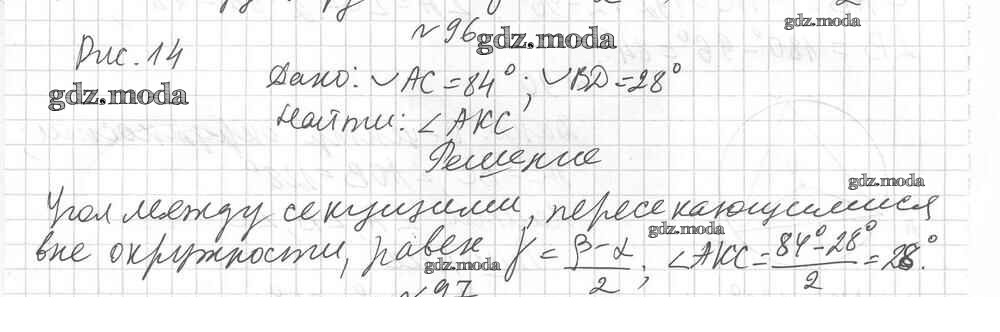 №96
gdz.moda
gdz.moda
Рис. 14
Дано: ◡AC = 84°; ◡BD = 28°
gdz.moda
Найти: ∠AKC
Решение
gdz.moda
Угол между секущими, пересекающимися
gdz.moda
вне окружности, равен γ = (β-α)/2; ∠AKC = (84°-28°)/2 = 28°.
gdz.moda
№97